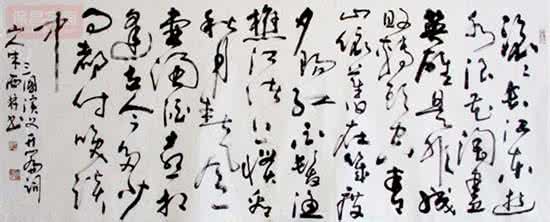 滚滚长江东逝
水浪花淘尽
英雄是非成
败转头空青
山依旧在几度
夕阳红白发渔
樵江渚上惯看
秋月春风一
壶浊酒喜相
逢古今多少
事都付笑谈
中
三國演义开篇词
山人朱西